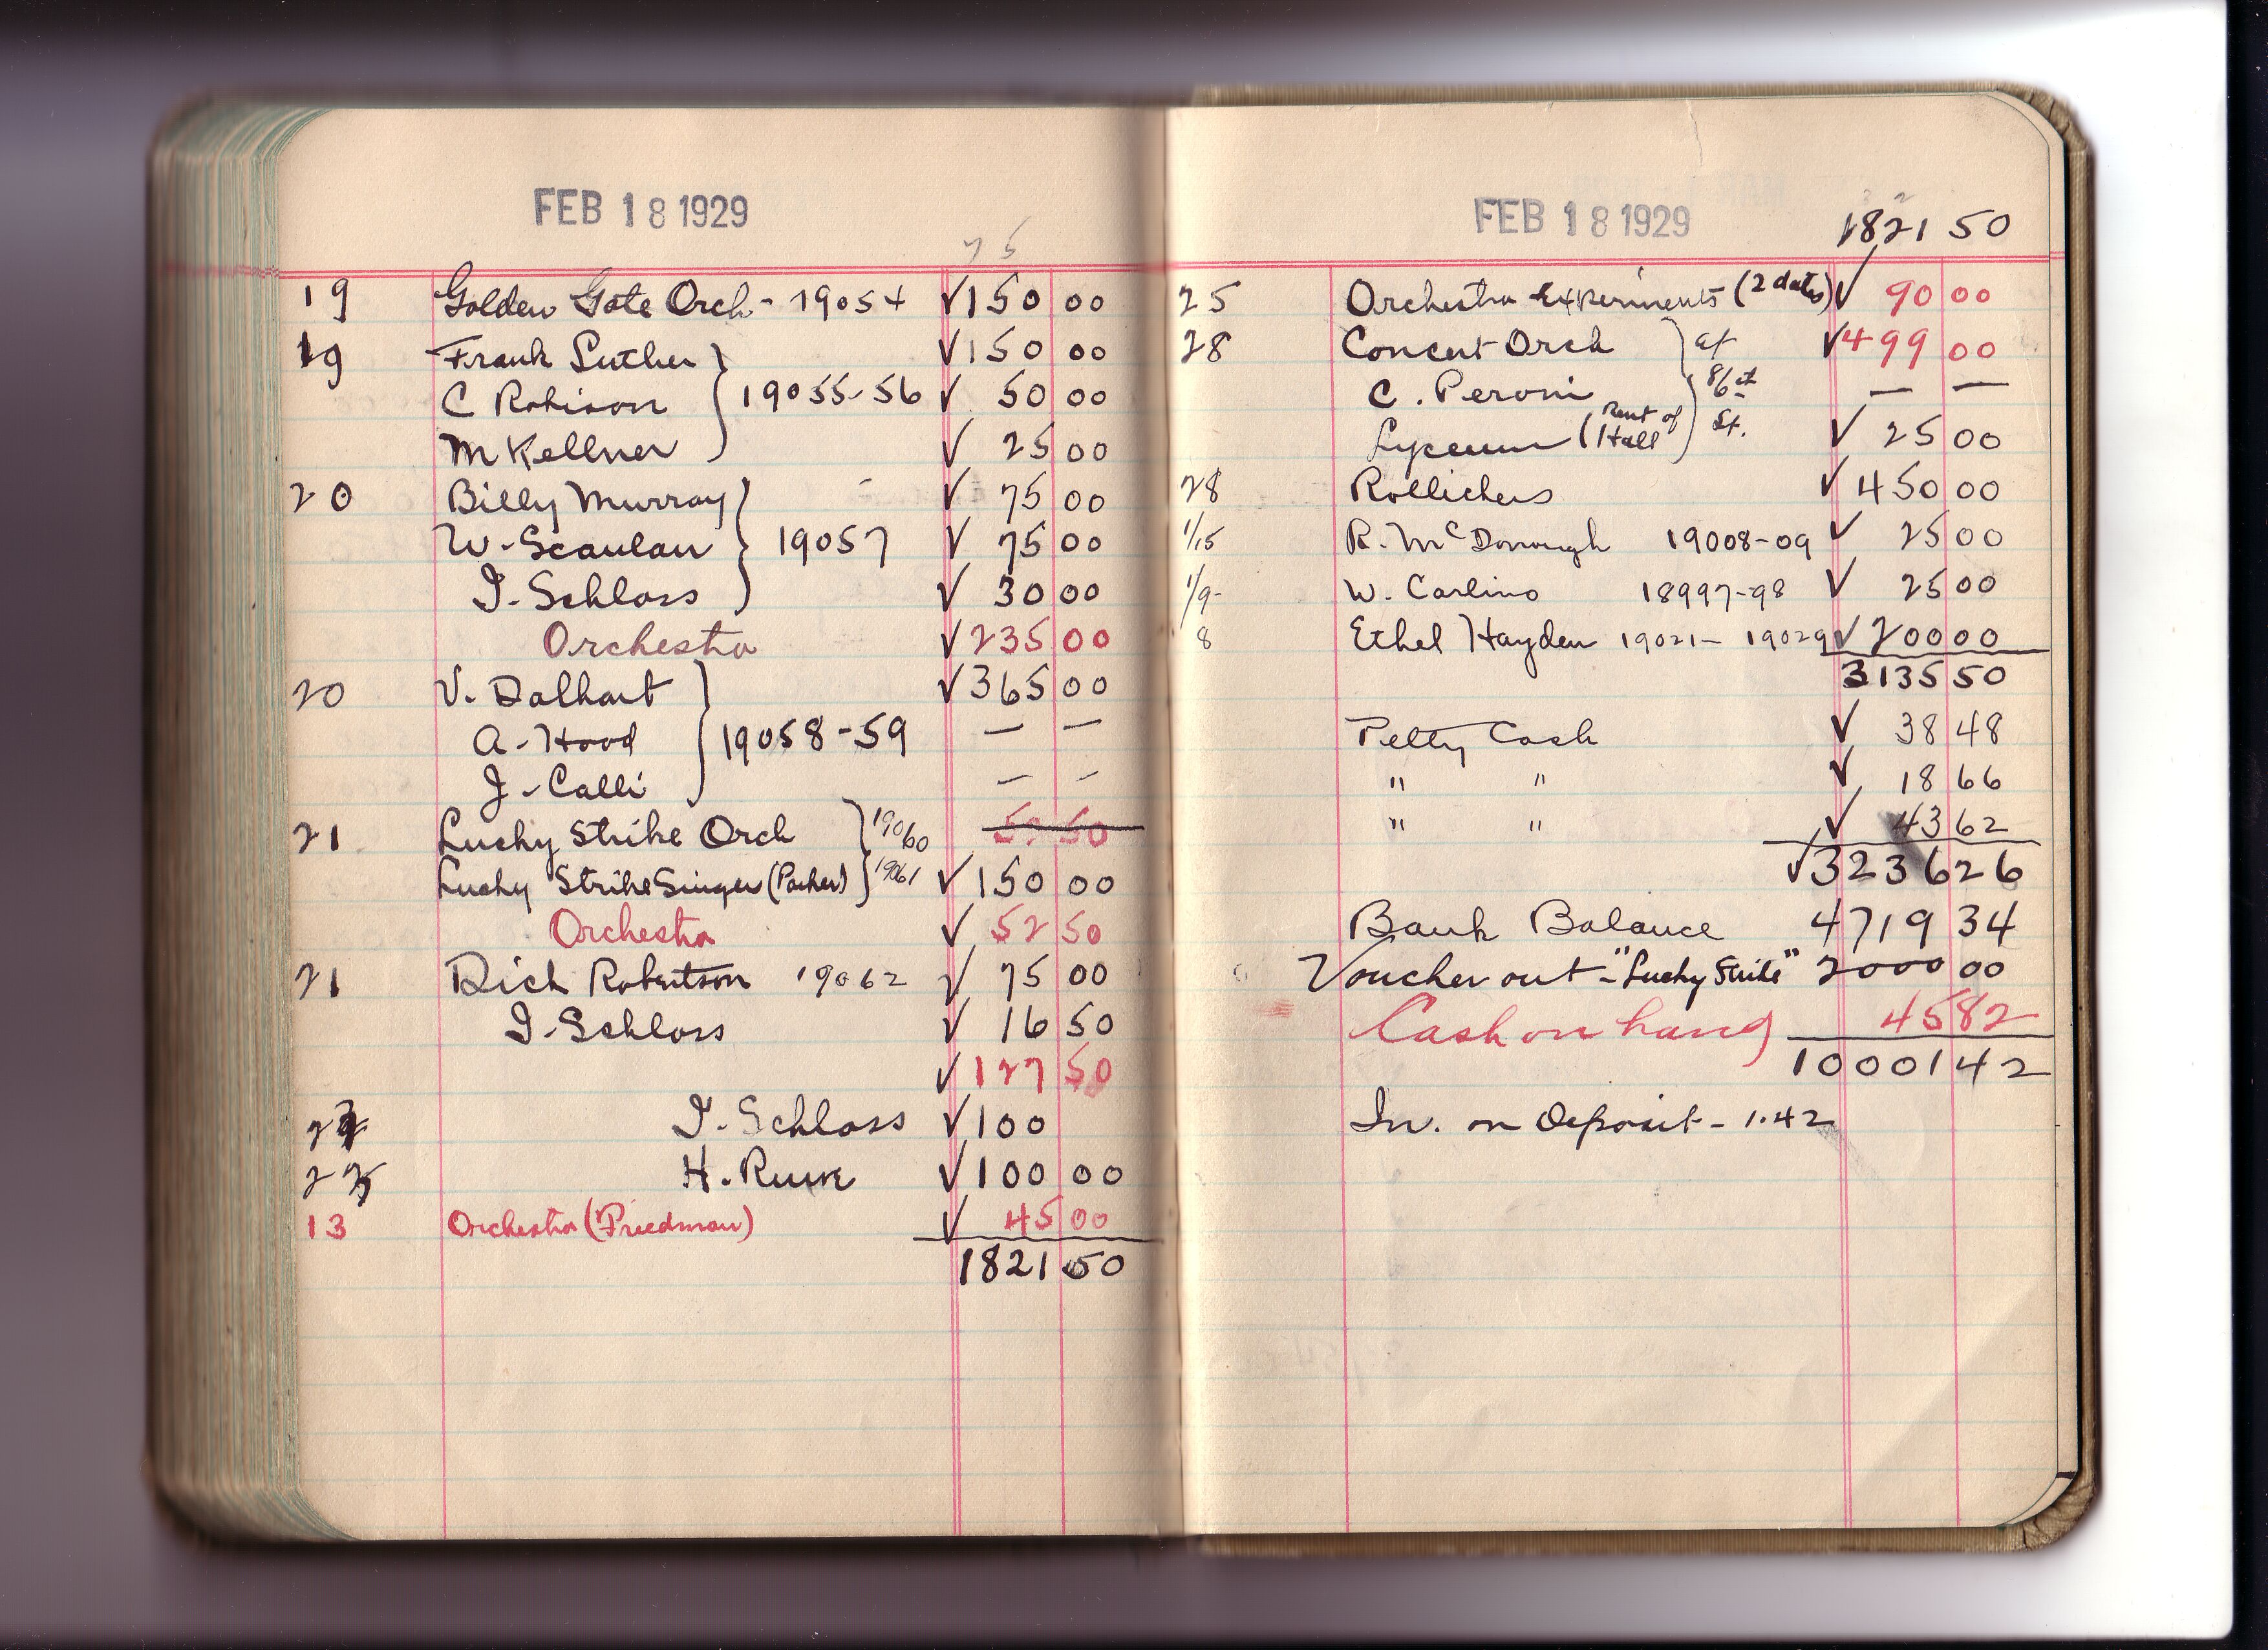 FEB 18 1929
75
19 Golden Gate Orch - 19054 √150 00
19 Frank Luther √150 00
C Robison } 19055-56 √ 50 00
M Kellner √ 25 00
20 Billy Murray √ 75 00
W. Scanlan } 19057 √ 75 00
I. Schloss √ 30 00
Orchestra √235 00
20 V. Dalhart √365 00
A. Hood } 19058-59 — —
J. Calli — —
21 Lucky Strike Orch } 19060 52 50
Lucky Strike Singer (Parker) } 19061 √150 00
Orchestra √ 52 50
21 Dick Robertson 19062 √ 75 00
I. Schloss √ 16 50
√127 50
I. Schloss √100
H. Ruse √100 00
13 Orchestra (Friedman) √ 45 00
1821 50
FEB 18 1929
1821 50
25 Orchestra Experiments (2 dates) √ 90 00
28 Concert Orch } at √499 00
C. Peroni 86 st — —
Lyceum (Rent of Hall) St. √ 25 00
28 Rollickers √ 450 00
1/15 R. McDonough 19008-09 √ 25 00
1/9- W. Carlino 18997-98 √ 25 00
8 Ethel Hayden 19021- 19029 √ 200 00
3135 50
Petty Cash √ 38 48
" " √ 18 66
" " √ 43 62
√3236 26
Bank Balance 4719 34
Voucher out - "Lucky Strike" 2000 00
Cash on hand 45 82
10001 42
In. on Deposit - 1.42